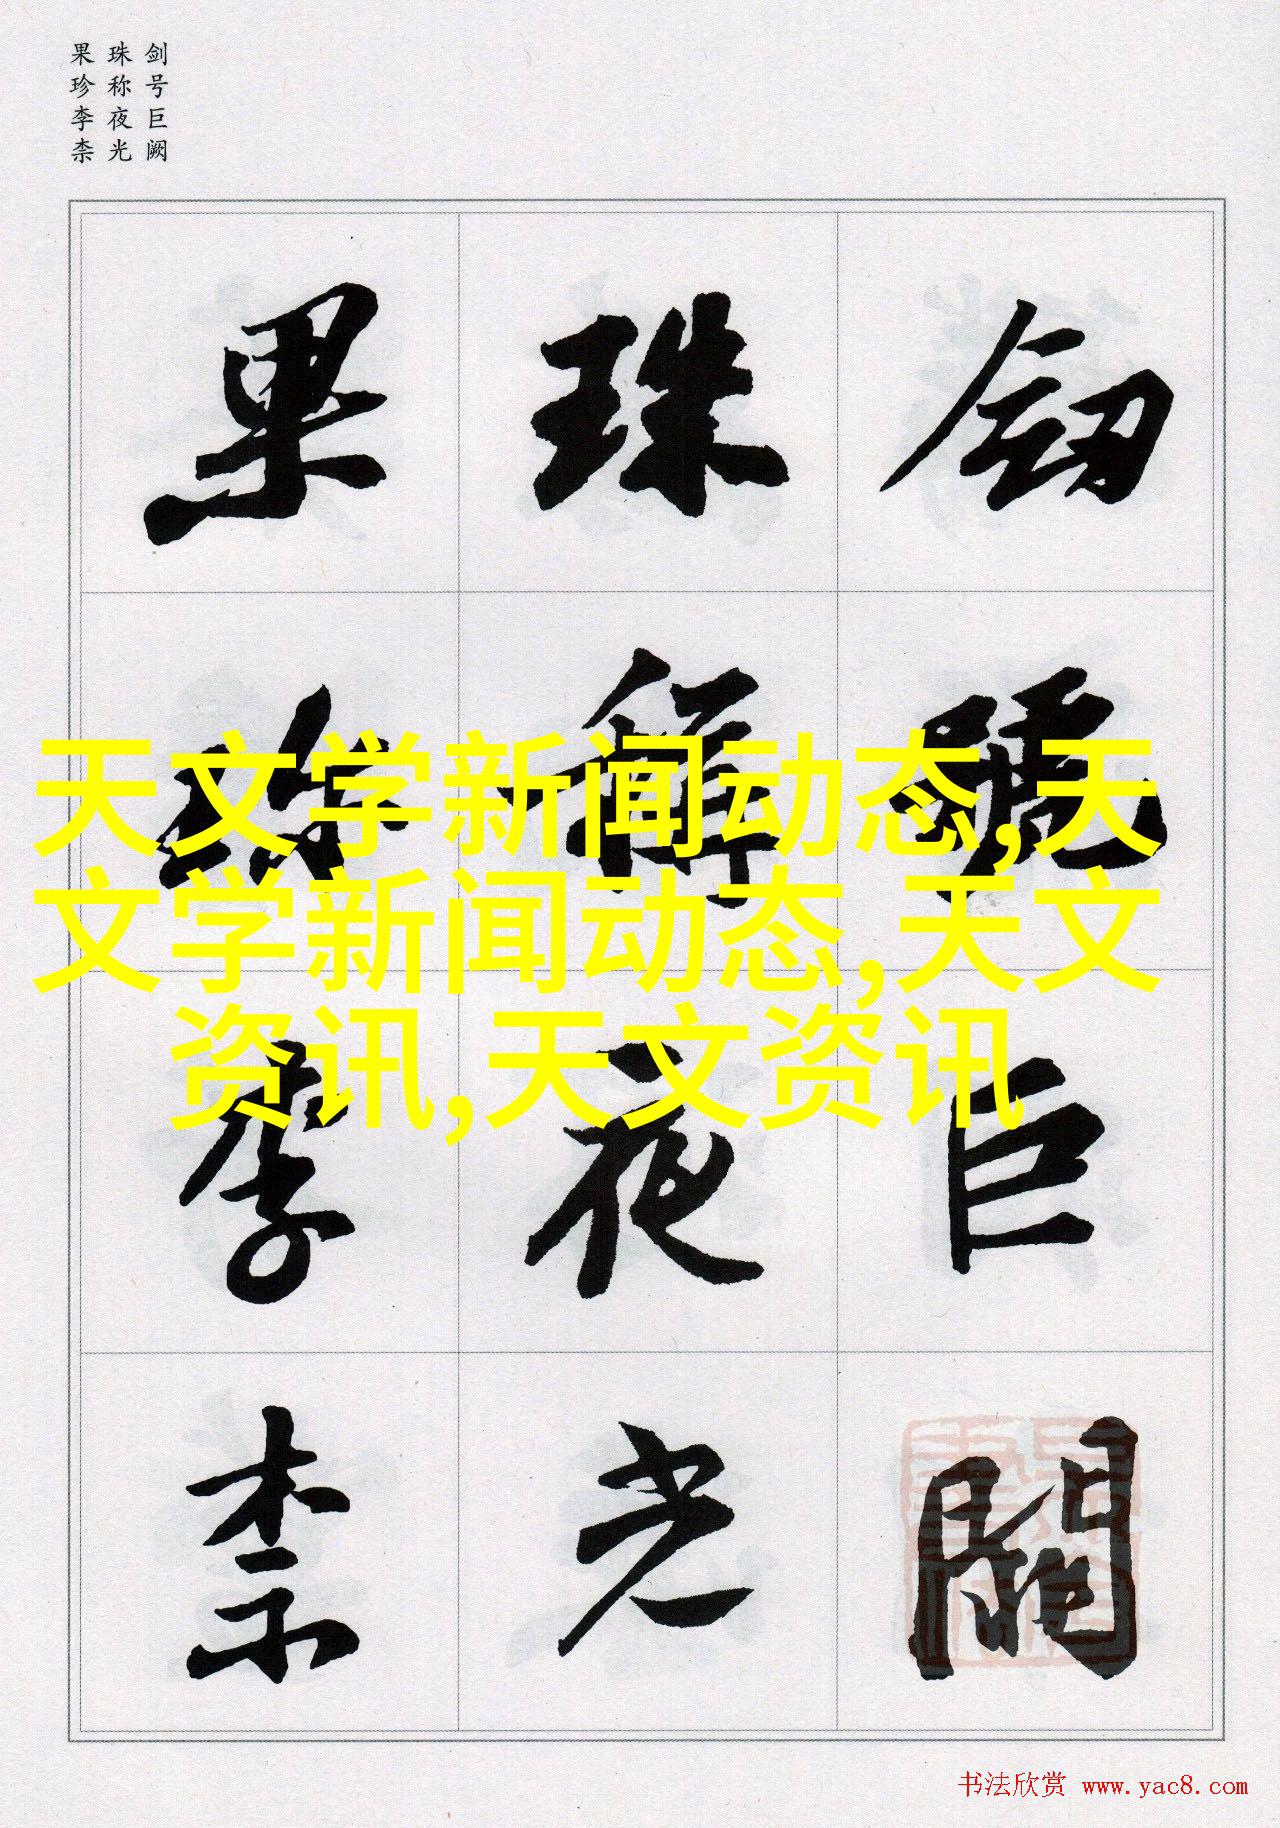 剑号巨阙
珠称夜光
果珍李柰
劒號巨闕
珠稱夜光
果珍李柰
天文学新闻动态,天
文学新闻动态,天文
资讯,天文资讯
书法欣赏 www.yac8.com